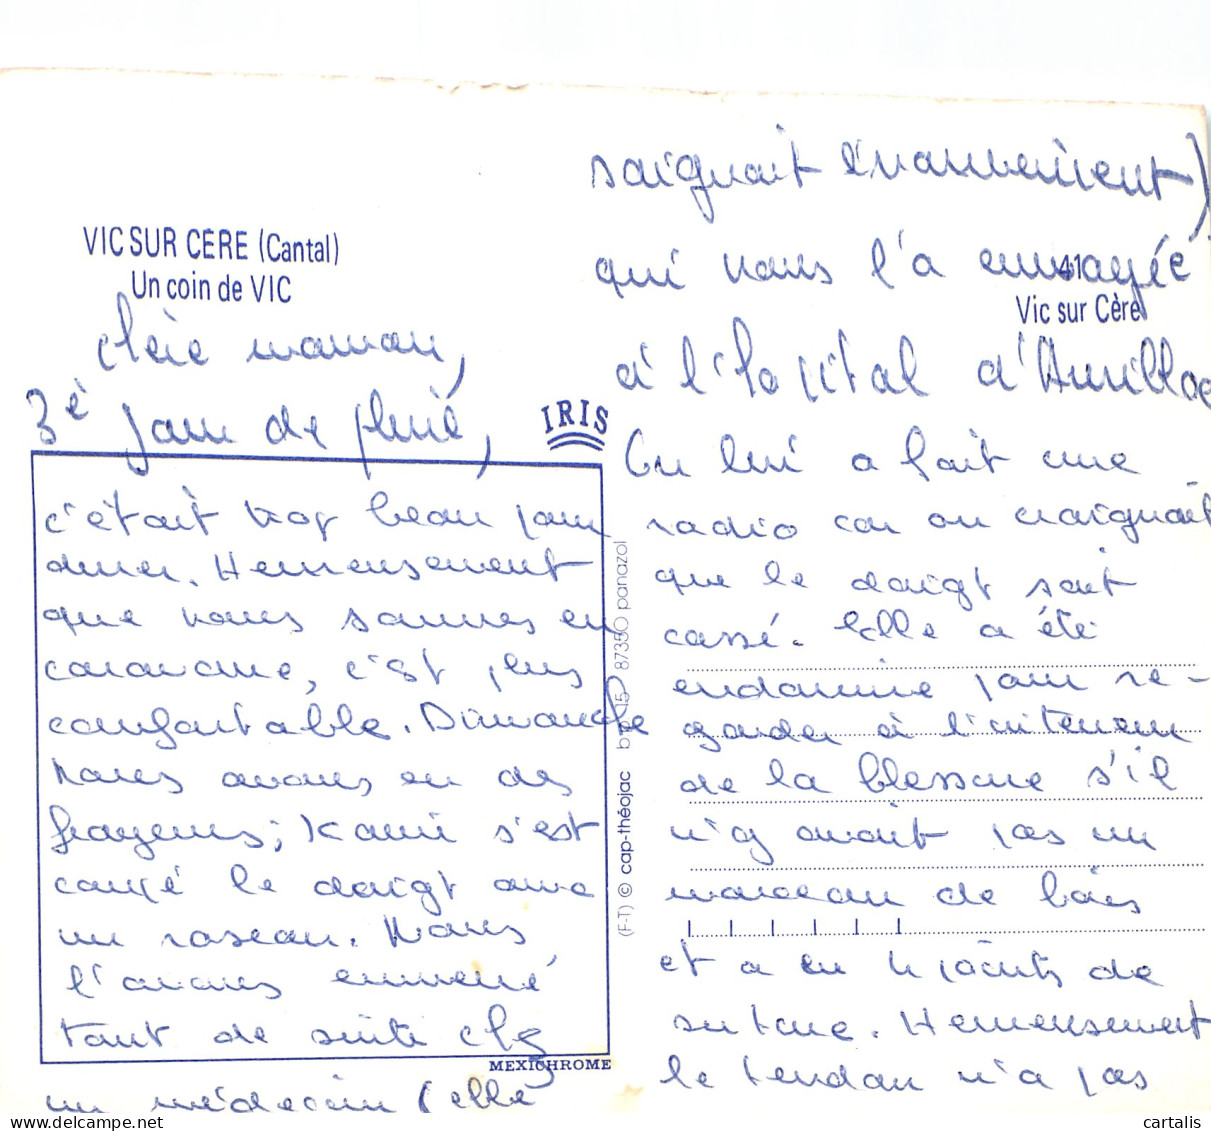 VIC SUR CÈRE (Cantal)
Un coin de VIC
chère maman,
3e jour de pluie,
c'était trop beau pour
durer. Heureusement
que nous sommes en
caravane, c'est plus
confortable. Dimanche
nous avons eu des
frayeurs; Kami s'est
coupé le doigt avec
un roseau. Nous
l'avons emmené
tout de suite chez
un médecin (elle
saignait énormément)
qui nous l'a envoyée
41
Vic sur Cère
à l'hopital d'Aurillac
On lui a fait une
radio car on craignait
que le doigt soit
cassé. Elle a été
endormie pour re-
garder à l'intérieur
de la blessure s'il
n'y avait pas un
morceau de bois
et a eu 4 points de
suture. Heureusement
le tendon n'a pas
IRIS
MEXICHROME
(F-T) © cap-théojac bp 15 87350 panazol
cartalis